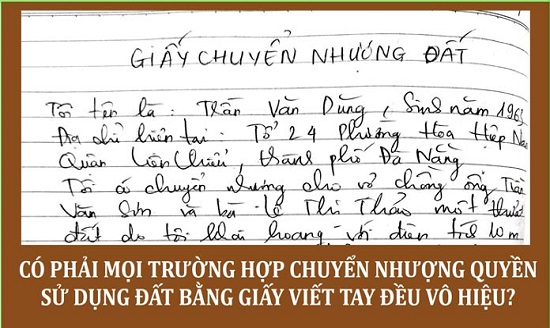 GIẤY CHUYỂN NHƯỢNG ĐẤT
Tôi tên là : Trần Văn Dũng, Sinh năm 196
Địa chỉ hiện tại : Tổ 24 Phường Hòa Hiệp Na
Quận Liên Chiểu, thành phố Đà Nẵng
Tôi có chuyển nhượng cho vợ chồng ông Trần
Văn Sơn và bà Lê Thị Thảo một thửa
đất do tôi khai hoang với diện tích 10 m
CÓ PHẢI MỌI TRƯỜNG HỢP CHUYỂN NHƯỢNG QUYỀN
SỬ DỤNG ĐẤT BẰNG GIẤY VIẾT TAY ĐỀU VÔ HIỆU?